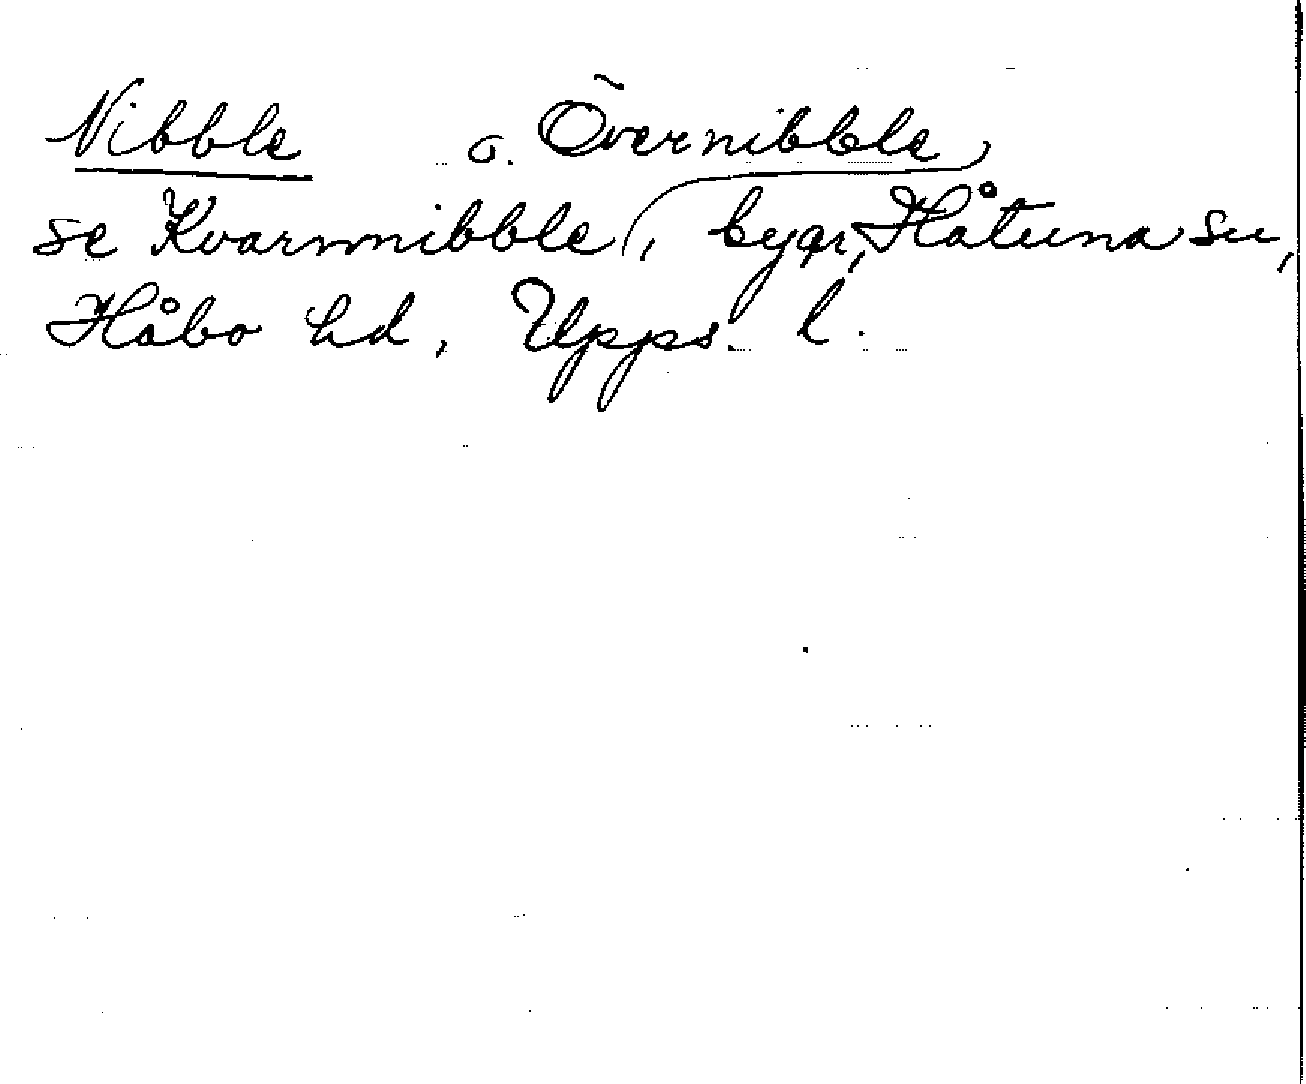 Nibble
o. Övernibble
se Kvarnnibble, byar, Håtuna sn,
Håbo hd, Upps. l.